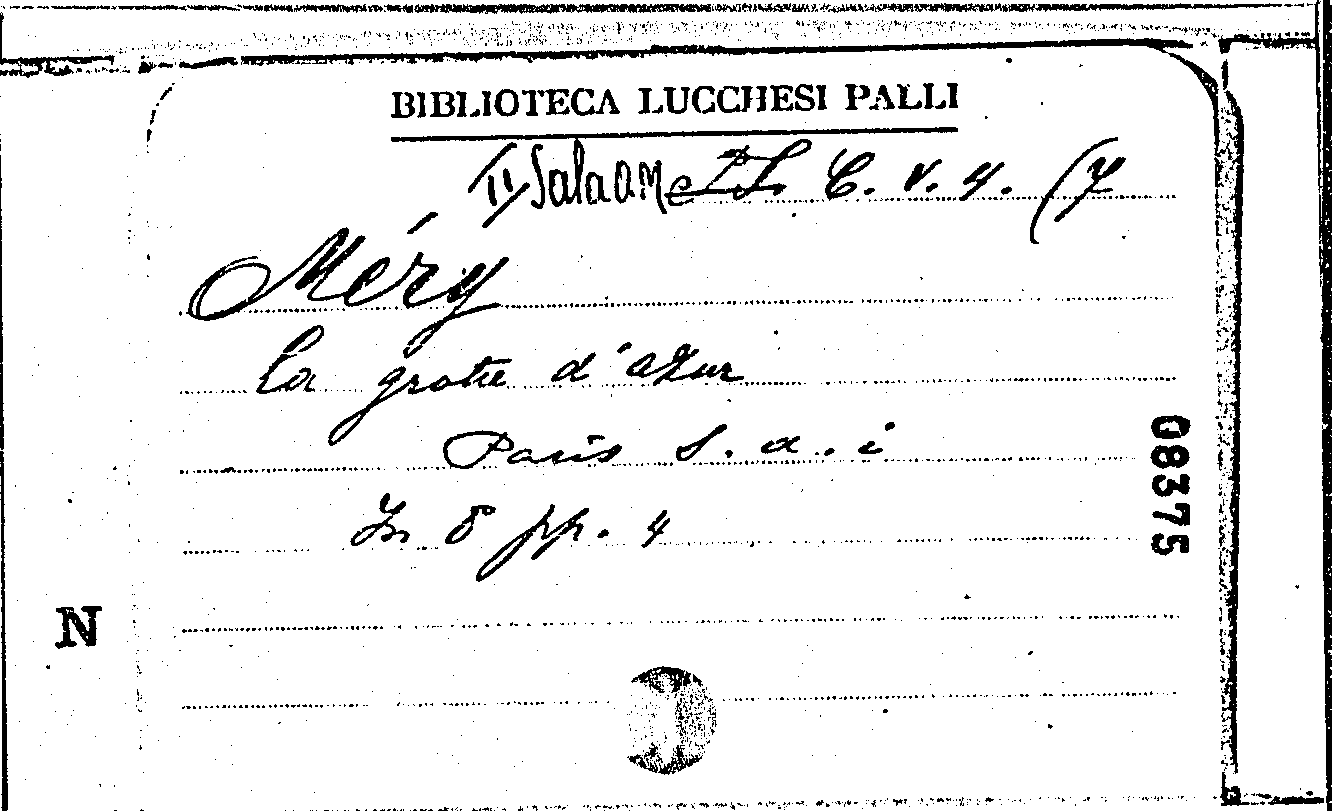 BIBLIOTECA LUCCHESI PALLI
II Sala C. V. 4. (7
Méry
La grotte d'azur
Paris S. a. i
In 8 pp. 4
08375
N